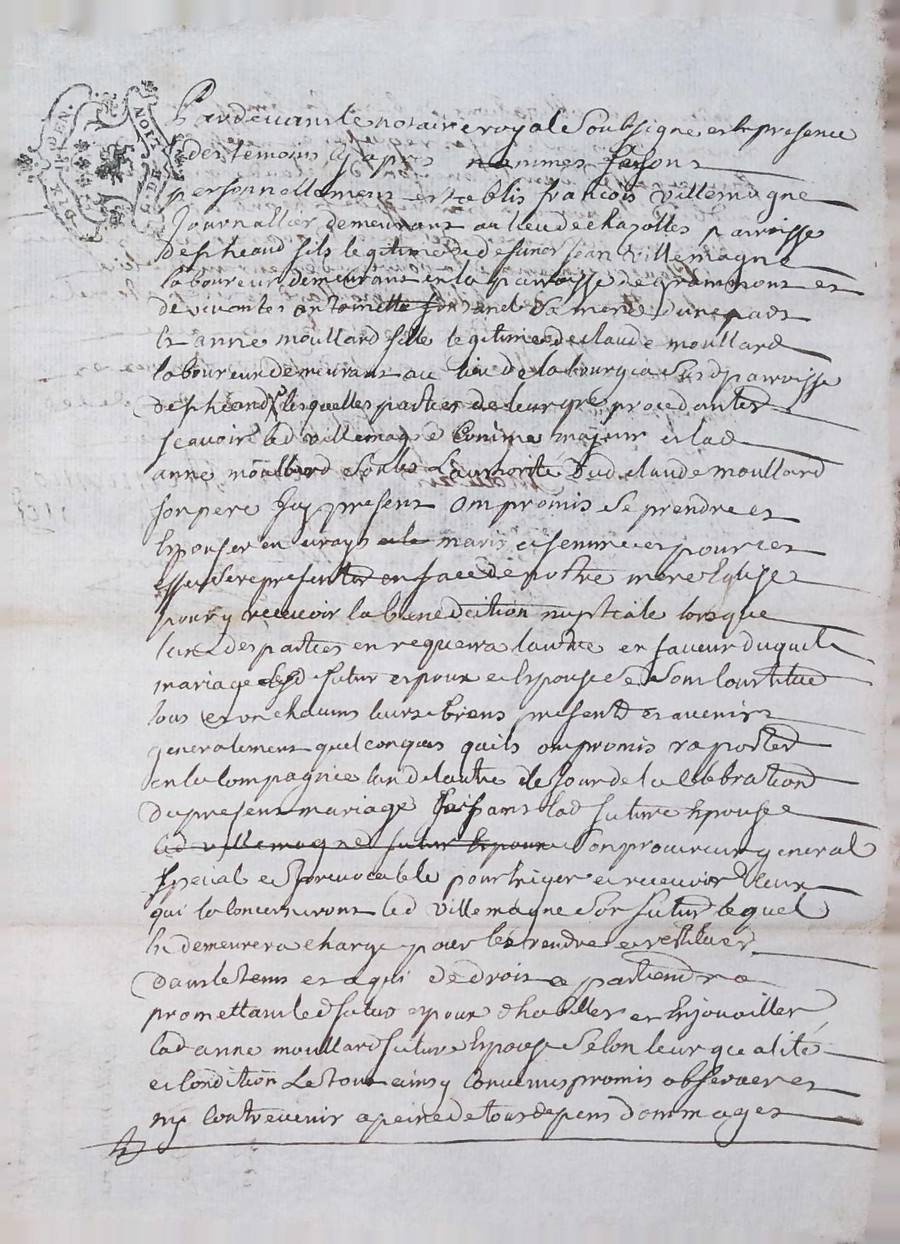 DIX. DEN.
G. DE NOIZ
Pardevant le notaire royal soubsigne et en presence
des temoins cy apres nommes furent
personnellement establis francois villemagne
Journallier demeurant au lieu de chazolles parroisse
fils legitime de defunct jean villemagne
laboureur demeurant en la parroisse de grammont et
de vivante antoinette sa mere d'une part
Et anne moullard fille legitime de claude moullard
laboureur demeurant au lieu de la susd parroisse
lesquelles parties de leur gré procedantes
scavoir led villemagne comme majeur et lad
anne moullard soubs l'authorité dud claude moullard
son pere Icy present ont promis se prendre et
Epouser en vrays maris et femme et pour cet
effect se representer en face de notre mere Eglise
pour y recevoir la benediction nuptiale lorsque
lune des parties en requerra lautre en faveur duquel
mariage lesd futur epoux et Epouse se sont constitué
tous et un chacuns leurs biens presents et avenirs
generalement quelconques quils ont promis raporter
en la compagnie lun de lautre le jour de la celebration
du present mariage faisant lad future Epouse
led villemagne futur Epoux son procureur general
special et irrevocable pour Exiger et recevoir
qui la concerneront led villemagne sor futur lequel
En demeurera charge pour les rendre et restituer
dans le tems et a qui de droit apartiendra
promettant led futur epoux d'habiller et Enjouailler
lad anne moullard future Epouse selon leur qualité
et condition Le tout ainsy convenu promis observer et
ny contrevenir a peine de tous depens dommages